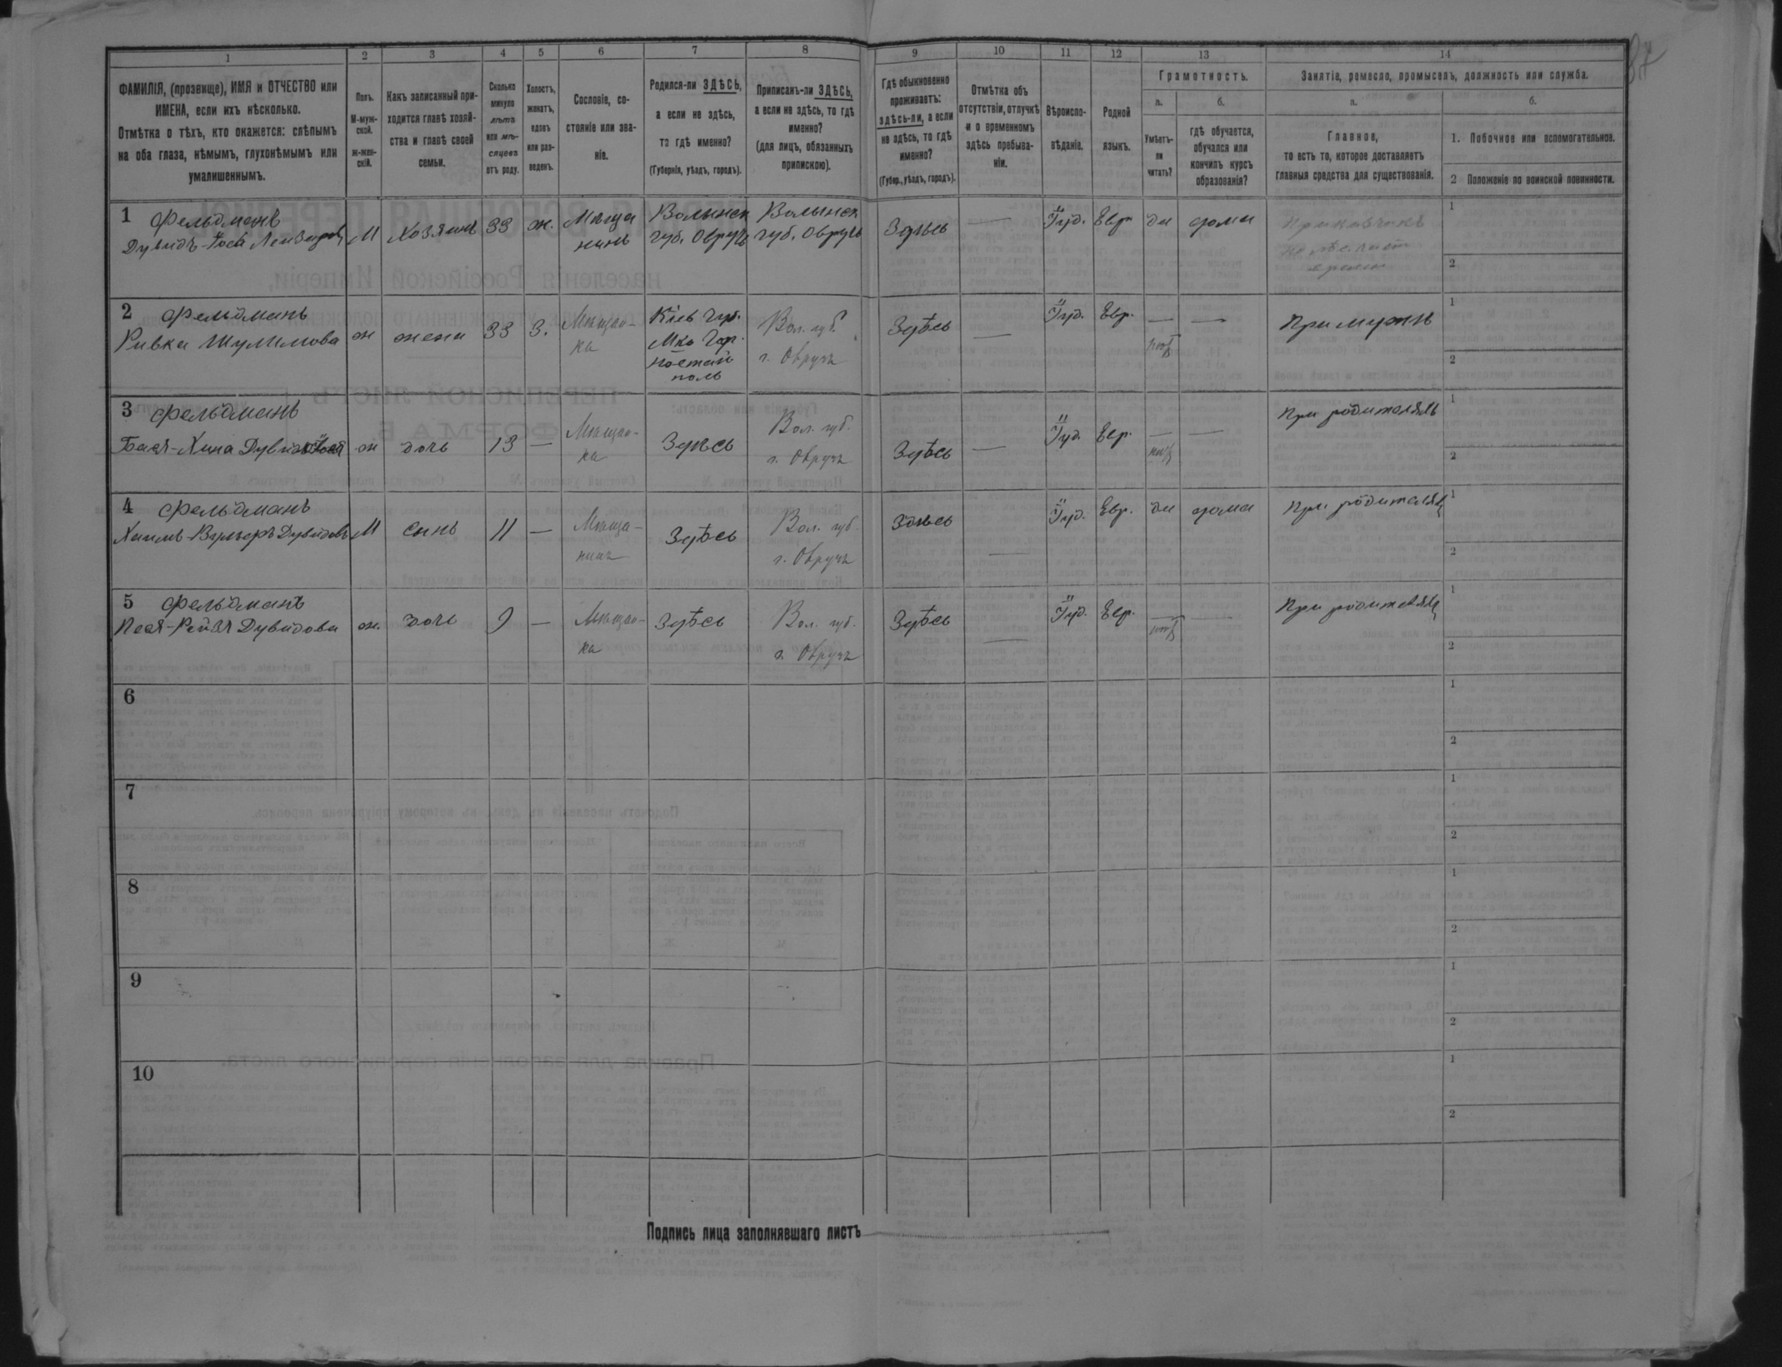 1 2 3 4 5 6 7 8 9 10 11 12 13 14
ФАМИЛІЯ, (прозвище), ИМЯ и ОТЧЕСТВО или
ИМЕНА, если ихъ нѣсколько.
Отмѣтка о тѣхъ, кто окажется: слѣпымъ
на оба глаза, нѣмымъ, глухонѣмымъ или
умалишеннымъ.
Полъ.
М-муж-
ской.
ж-жен-
скій.
Какъ записанный при-
ходится главѣ хозяй-
ства и главѣ своей
семьи.
Сколько
минуло
лѣтъ
или мѣ-
сяцевъ
отъ роду.
Холостъ,
женатъ,
вдовъ
или раз-
веденъ.
Сословіе, со-
стояніе или зва-
ніе.
Родился-ли ЗДѢСЬ,
а если не здѣсь,
то гдѣ именно?
(Губернія, уѣздъ, городъ).
Приписанъ-ли ЗДѢСЬ,
а если не здѣсь, то гдѣ
именно?
(для лицъ, обязанныхъ
припискою).
Гдѣ обыкновенно
проживаетъ:
здѣсь-ли, а если
не здѣсь, то гдѣ
именно?
(Губер., уѣздъ, городъ).
Отмѣтка объ
отсутствіи, отлучкѣ
и о временномъ
здѣсь пребыва-
ніи.
Вѣроиспо-
вѣданіе.
Родной
языкъ.
Грамотность.
а.
Умѣетъ-
ли
читать?
б.
гдѣ обучается,
обучался или
кончилъ курсъ
образованія?
Занятіе, ремесло, промыселъ, должность или служба.
а.
Главное,
то есть то, которое доставляетъ
главныя средства для существованія.
б.
1. Побочное или вспомогательное.
2 Положеніе по воинской повинности.
1 Фельдманъ
Дувидъ-Іосъ М Хозяинъ 33 ж. Мѣща
нинъ Волынск
губ. Овручъ Волынск
губ. Овручъ Здѣсь — Іуд. Евр да дома Приказчикъ
1
2
2 Фельдманъ
Ривка Шулимова ж жена 33 З. Мѣщан-
ка Кіев Губ.
Мко Гор-
ностай
поль Вол. губ.
г. Овручъ Здѣсь — Іуд. Евр. — — При мужѣ
1
2
3 Фельдманъ
Бася-Хина ж дочь 13 — Мѣщан-
ка Здѣсь Вол. губ.
г. Овручъ Здѣсь — Іуд. Евр. — — При родителяхъ
1
2
4 Фельдманъ
М сынъ 11 — Мѣща-
нинъ Здѣсь Вол. губ.
г. Овручъ Здѣсь — Іуд. Евр. да дома При родителях
1
2
5 Фельдманъ
Песя-Рейзя Дувидова ж. дочь 9 — Мѣщан-
ка Здѣсь Вол. губ.
г. Овручъ Здѣсь — Іуд. Евр. — — При родителях
1
2
6
1
2
7
1
2
8
1
2
9
1
2
10
1
2
Подпись лица заполнявшаго листъ